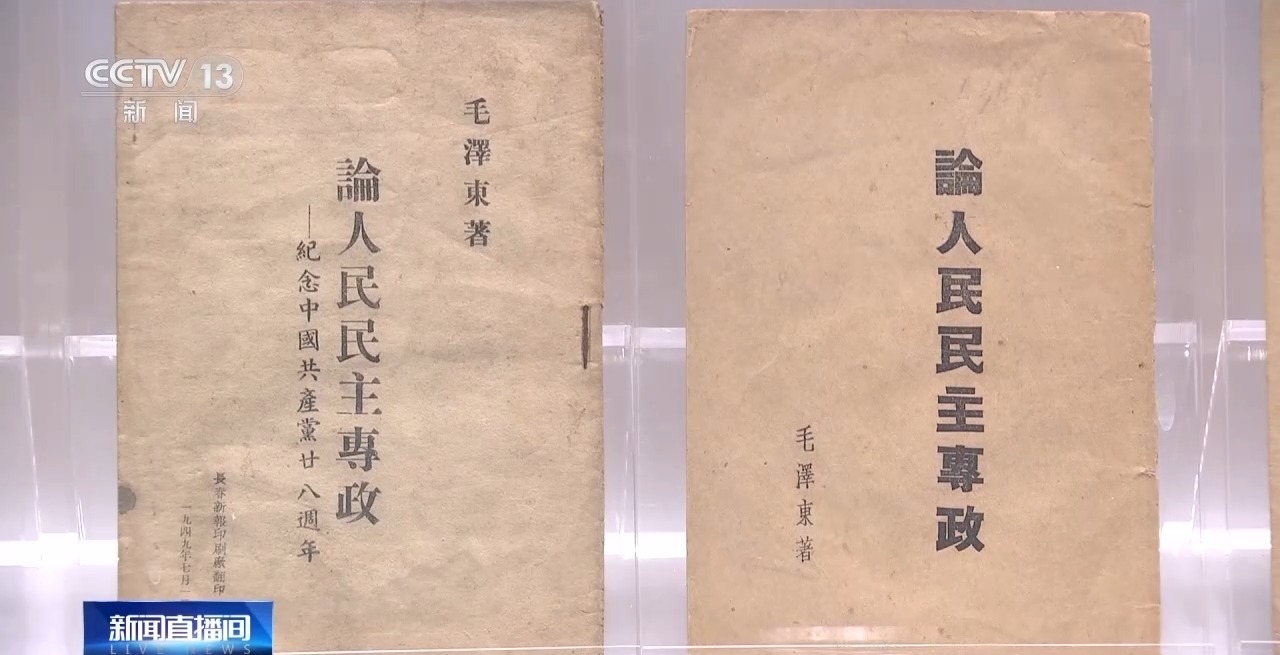 CCTV 13
新闻
毛澤東著
論人民民主專政
——紀念中國共產黨廿八週年
長春新報印刷廠翻印
一九四九年七月一
論人民民主專政
毛澤東著
新闻直播间
LIVE NEWS